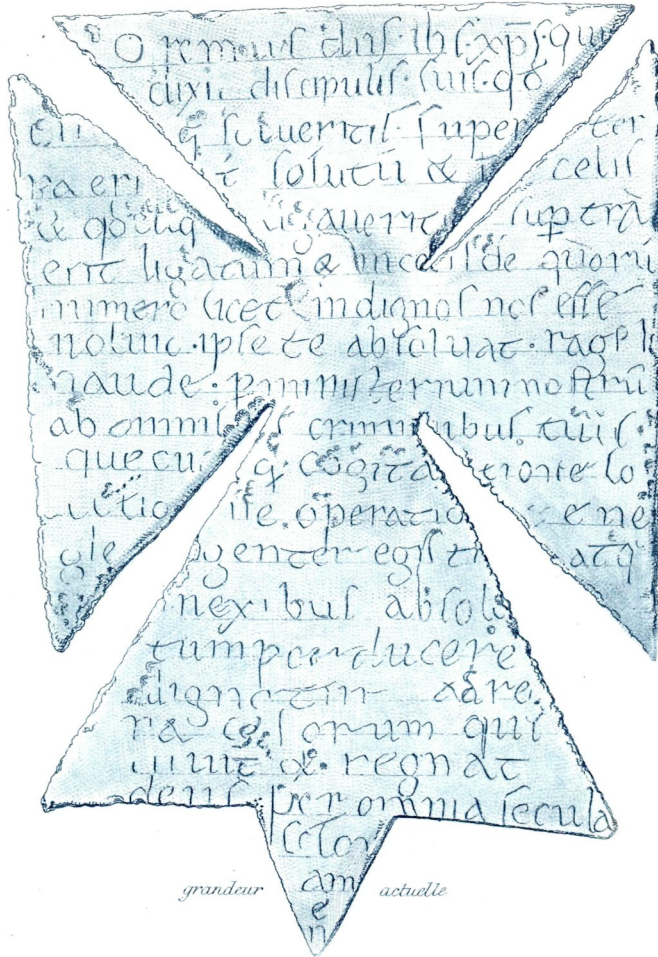 O dns ihs xps qui
dixit discipulis suis qd
solveritis super ter
ra eri t solutū & celis
ligaveriti sup trā
erit ligatum & in celis de quorū
numero licet indignos nos esse
voluit ipse te absolvat
naude p ministerium nostrū
ab omnibus criminibus tuis
quecū q cogitatione lo
cutione operatione ne
gle genter egisti atq
nexibus absolu
tum perducere
dignetur ad re
celorum qui
vivit & regnat
deus per omnia secula
sclor
am
e
n
grandeur actuelle